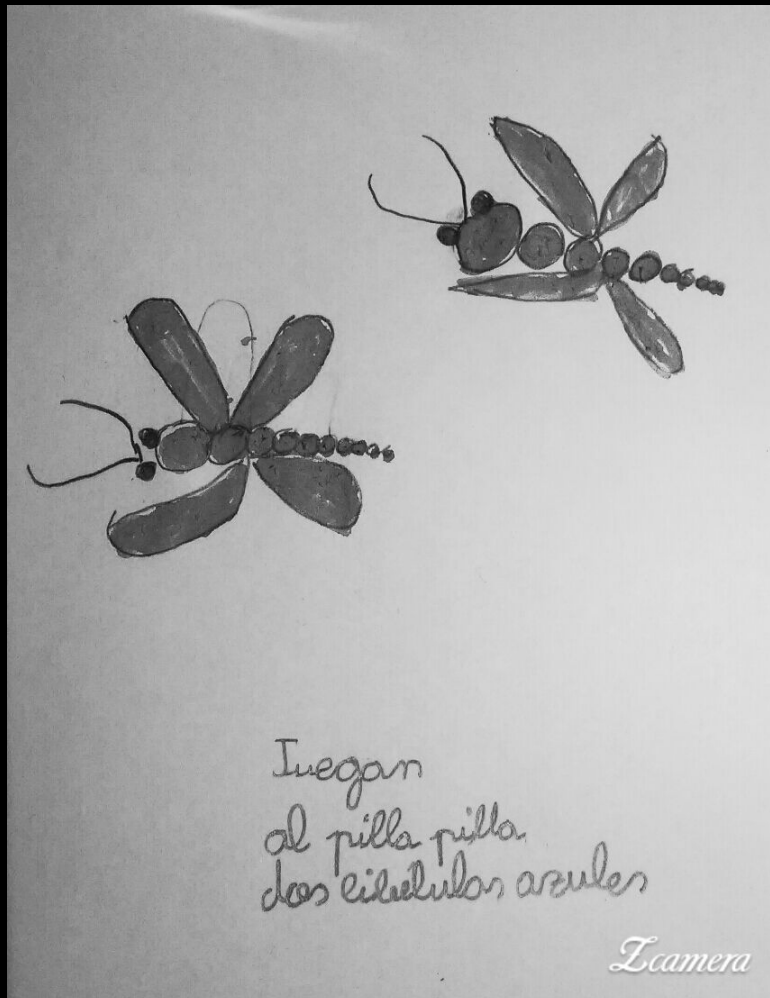 Juegan
al pilla pilla
dos libélulas azules
Zcamera